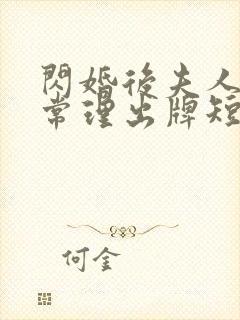 閃婚後夫人
常理出牌短
何金